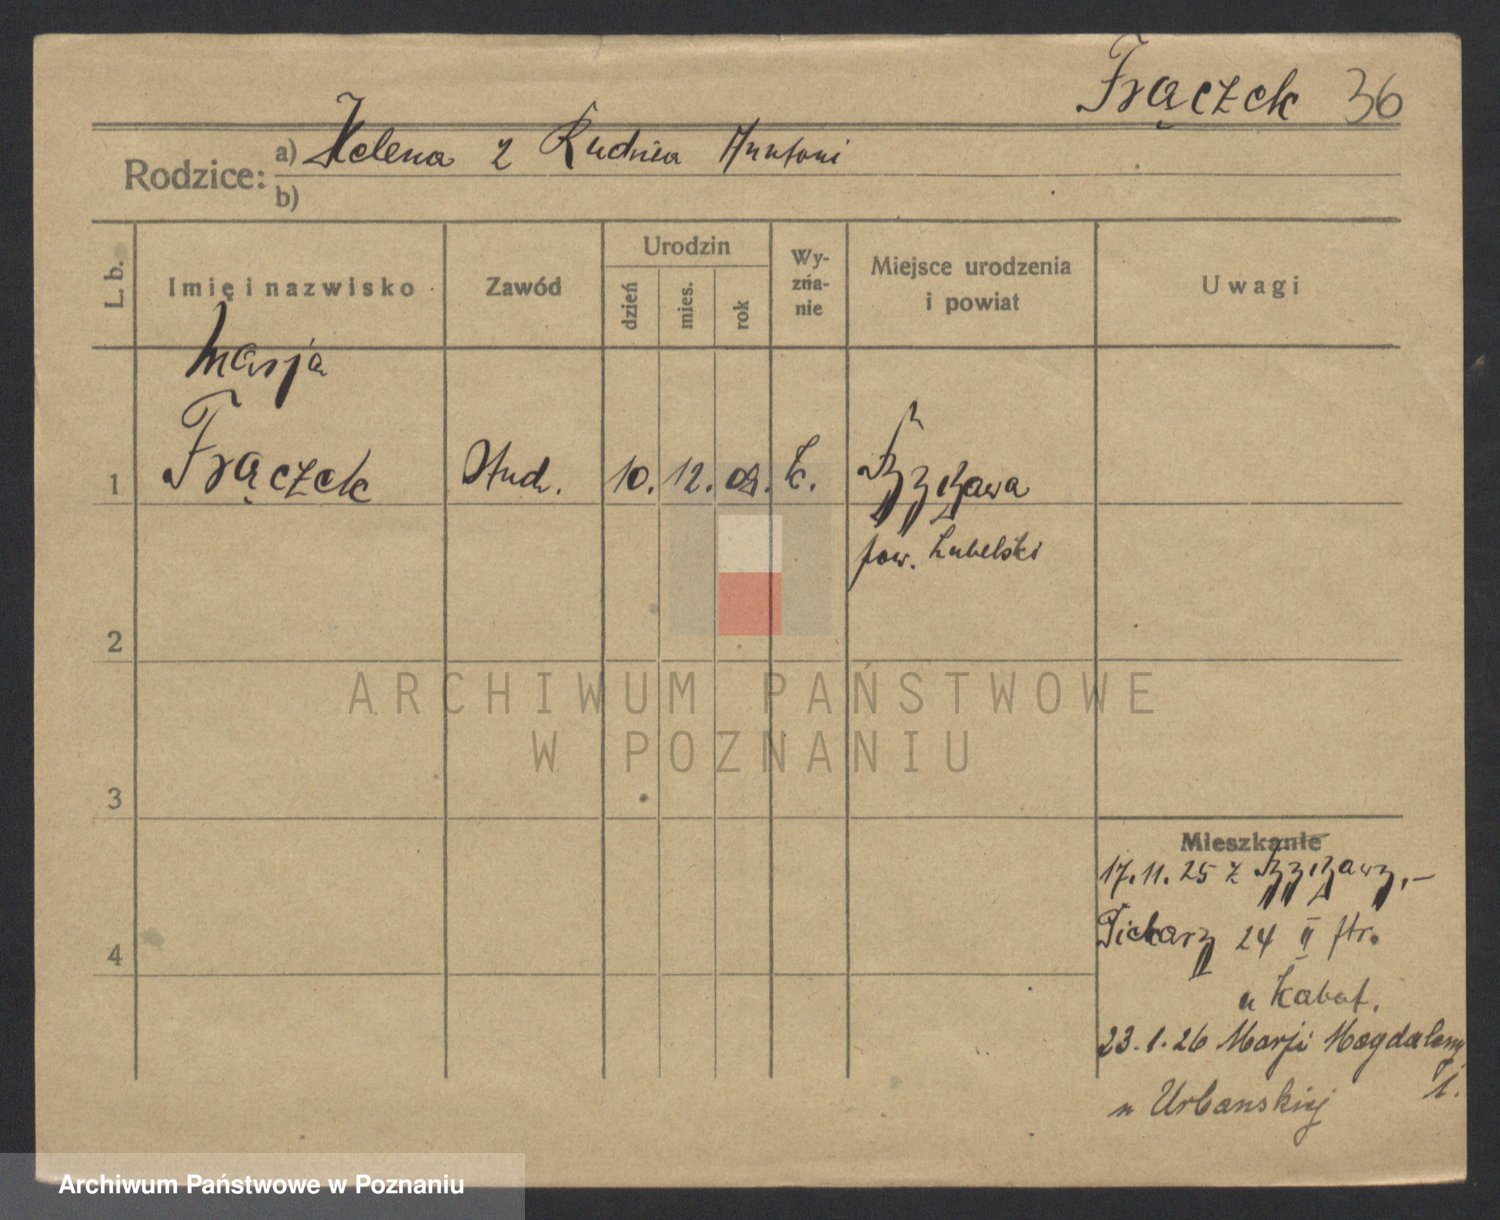 Frączek 36
Rodzice: a) Helena z Rudnia Antoni
b)
L. b.
Imię i nazwisko
Zawód
Urodzin
dzień
mies.
rok
Wy-
zna-
nie
Miejsce urodzenia
i powiat
Uwagi
Marja
1 Frączek Stud. 10. 12. 02. k.
pow. Lubelski
2
ARCHIWUM PAŃSTWOWE
W POZNANIU
3
Mieszkanie
17.11.25 z
Piekary 24 II ptr.
4
u Kabat.
23.1.26 Marji Magdaleny
1.
u Urbanskiej
Archiwum Państwowe w Poznaniu